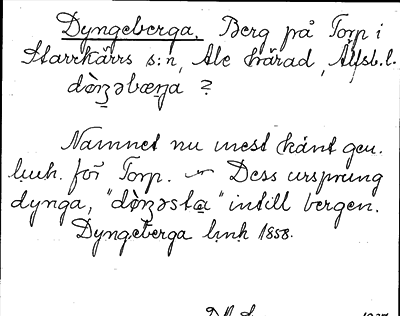 Dyngeberga. Berg på Torp i
Starrkärrs s:n, Ale härad, Älfsb.l.
dòŋʒəbærja ?
Namnet nu mest känt gen.
lmh. för Torp. — Dess ursprung
dynga, "dòŋʒəsta" intill bergen.
Dyngeberga lmh 1858.